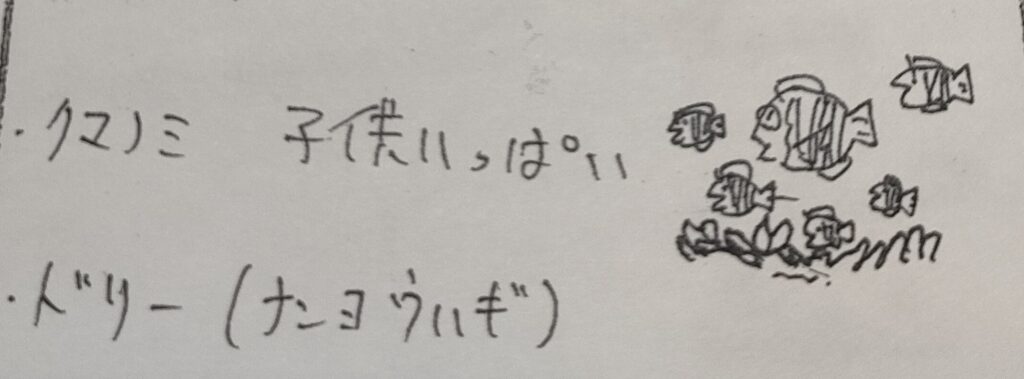 ・クマノミ 子供いっぱい
・ドリー（ナンヨウハギ）